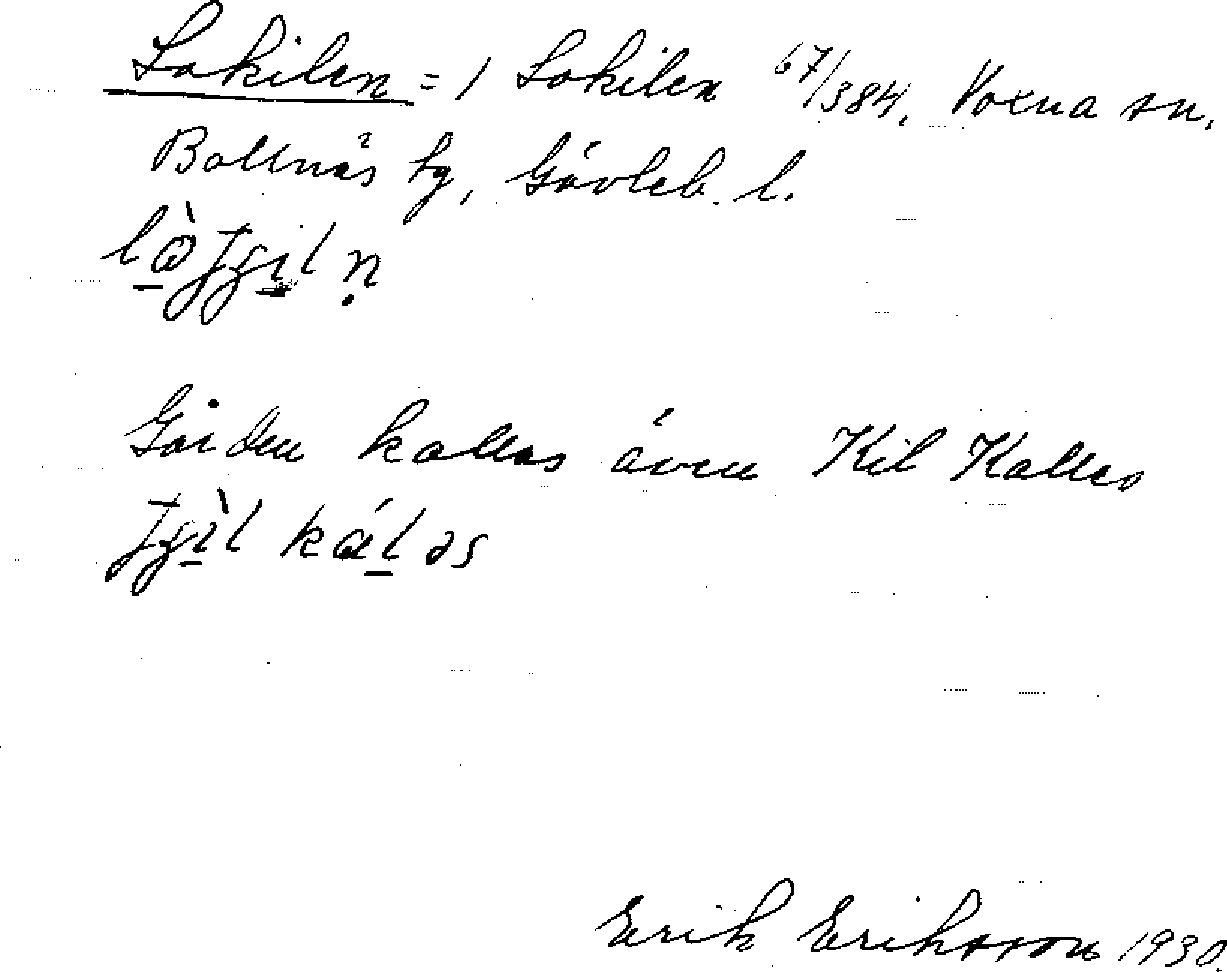 Lokilen = 1 Lokilen 67/384, Voxna sn,
Bollnäs tg, Gävleb. l.
Gården kallas även Kil Kalles
Erik Eriksson 1930.